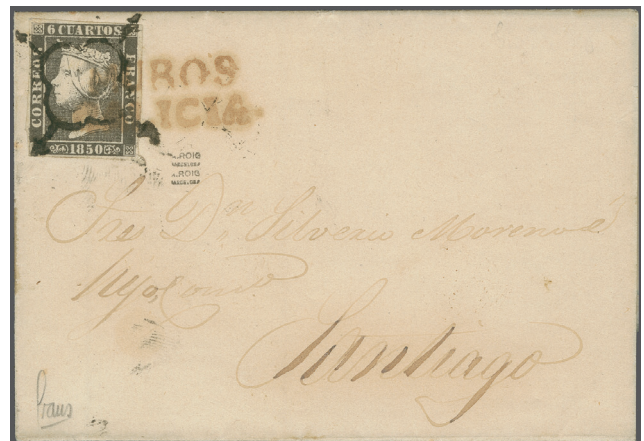 6 CUARTOS
CORREOS
FRANCO
1850
BROS
ICIA
A.ROIG
A.ROIG
Sres Dn Silverio Moreno é
Hijo, Comº
Santiago
Graus